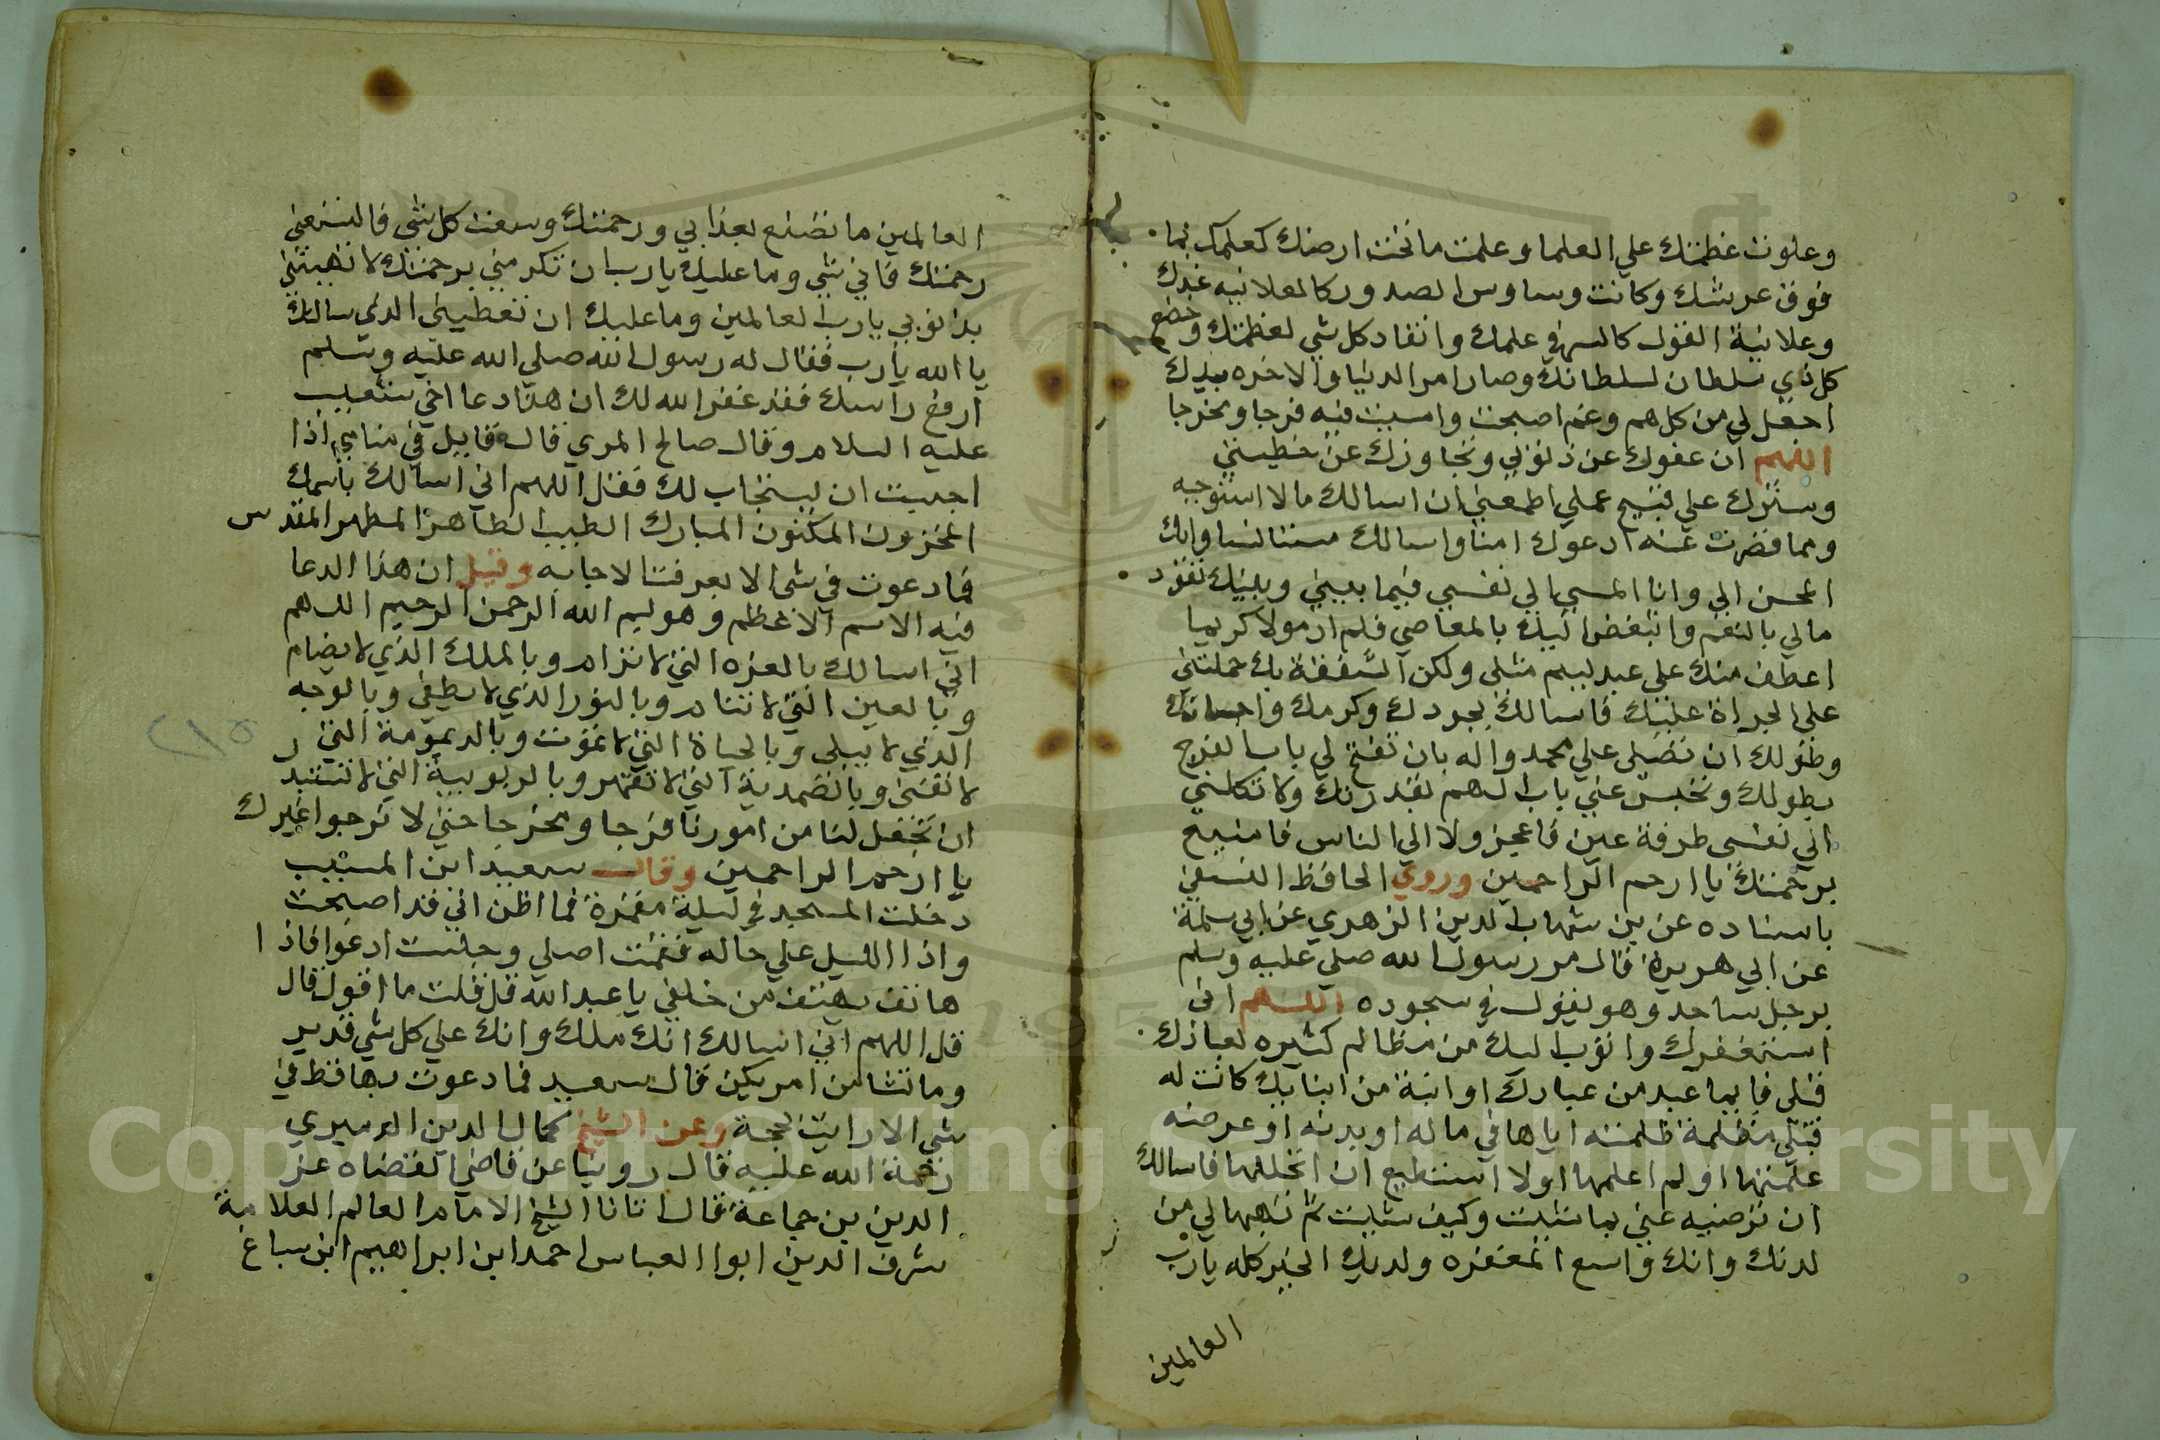 وعلوت عظمتك علي العلما وعلمت ما تحت ارضك كعلمك بما
فوق عرشك وكانت وساوس الصدور كالعلانيه عندك
وعلانية القول كالسر في علمك وانقاد كل شي لعظمتك وخضع
كل ذي سلطان لسلطانك وصار امر الدنيا والاخره بيدك
اجعل لي من كل هم وغم اصبحت وامسيت فيه فرجا ومخرجا
اللهم ان عفوك عن ذنوبي وتجاوزك عن خطيئتي
وسترك علي قبيح عملي اطمعني ان اسالك ما لا استوجبه
ومما قصرت عنه ادعوك امنا واسالك مستانسا وانك
المحسن الي وانا المسي الي نفسي فيما بيني وبينك تتودد
مالي بالنعم واتبغض اليك بالمعاصي فلم ار مولا كريما
اعطف منك علي عبد لييم مثلي ولكن الثقة بك حملتني
علي الجراة عليك فاسالك بجودك وكرمك واحسانك
وطولك ان تصلي علي محمد واله بان تفتح لي باب الفرج
بطولك وتحبس عني باب الهم بقدرتك ولا تكلني
الي نفسي طرفة عين فاعجز ولا الي الناس فاضيع
برحمتك يا ارحم الراحمين وروي الحافظ النسفي
باسناده عن بن شهاب الدين الزهري عن ابي سلمة
عن ابي هريرة قال مر رسول الله صلي عليه وسلم
برجل ساجد وهو يقول في سجوده اللهم اني
استغفرك واتوب اليك من مظالم كثيره لعبادك
قبلي فايما عبد من عبادك او امة من امايك كانت له
قبلي مظلمة ظلمته اياها في ماله او بدنه او عرضه
علمتها او لم اعلمها او لا استطيع ان اتحللها فاسالك
ان ترضيه عني بما شيت وكيف شيت ثم تهبها لي من
لدنك وانك واسع المغفره ولديك الخير كله يا رب
العالمين
العالمين ما تصنع بعذابي ورحمتك وسعت كل شي فالتسعني
رحمتك فاني شي وما عليك يا رب ان تكرمني برحمتك لا تهينني
بذنوبي يا رب العالمين وما عليك ان تعطيني الذي سالتك
يا الله يا رب فقال له رسول الله صلي الله عليه وسلم
ارفع راسك فقد غفر الله لك ان هذا دعا اخي شعيب
عليه السلام وقال صالح المري قال قايل في منامي اذا
احببت ان يستجاب لك فقل اللهم اني اسالك باسمك
المخزون المكنون المبارك الطيب الطاهر المطهر المقدس
فما دعوت في شي الا تعرفت الاجابه وقيل ان هذا الدعا
فيه الاسم الاعظم وهو بسم الله الرحمن الرحيم اللهم
اني اسالك بالعزه التي لا ترام وبالملك الذي لا يضام
وبالعين التي لا تنام وبالنور الذي لا يطفي وبالوجه
الذي لا يبلي وبالحياة التي لا تموت وبالديمومة التي
لا تفني وبالصمدية التي لا تقهر وبالربوبية التي لا تستبد
ان تجعل لنا من امورنا فرجا ومخرجا حتي لا نرجوا غيرك
يا ارحم الراحمين وقال سعيد ابن المسيب
دخلت المسجد في ليلة مقمرة فما اظن اني قد اصبحت
واذا الليل علي حاله فقمت اصلي وجلست ادعوا فاذا
هاتف يهتف من خلفي يا عبد الله قل قلت ما اقول قال
قل اللهم اني اسالك انك ملك وانك علي كل شي قدير
وما تشا من امر يكن قال سعيد فما دعوت بها قط في
شي الا رايت نجحه وعن الشيخ كمال الدين الدميري
رحمة الله عليه قال روينا عن قاضي القضاه عز
الدين بن جماعة قال اتانا الشيخ الامام العالم العلامة
شرف الدين ابوا العباس احمد ابن ابراهيم ابن سباع
٢١٥
Copyright © King Saud University
1957